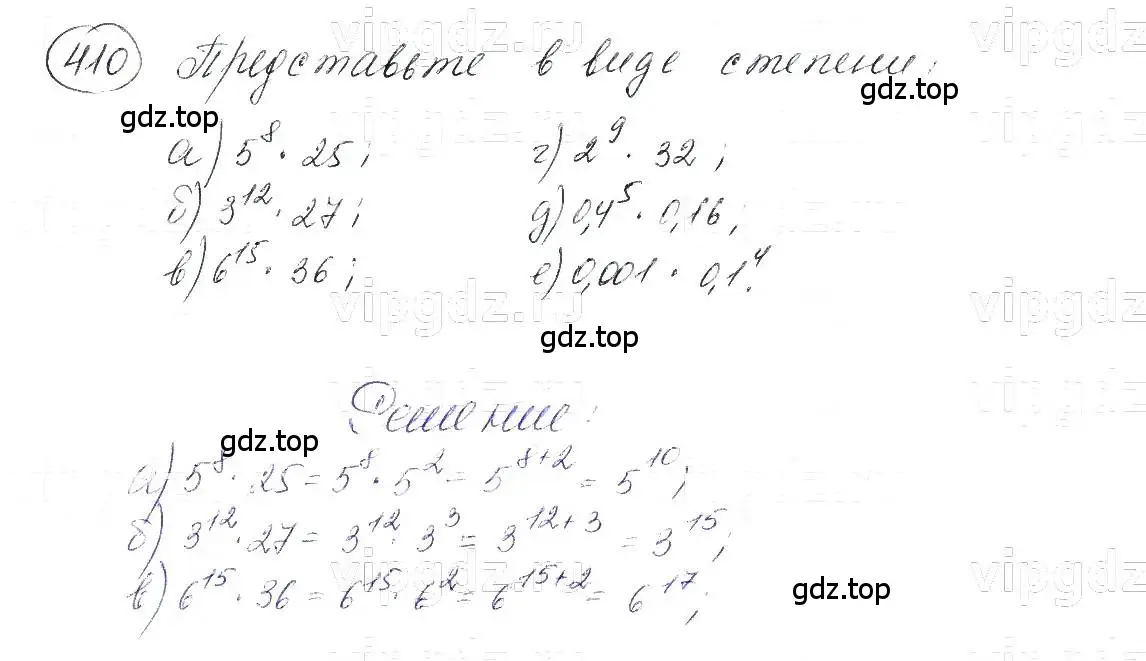 vipgdz.ru
410 Представьте в виде степени:
gdz.top
gdz.top
а) 5^8 · 25; г) 2^9 · 32;
б) 3^12 · 27; д) 0,4^5 · 0,16;
в) 6^15 · 36; е) 0,001 · 0,1^4.
vipgdz.ru vipgdz.ru
gdz.top
Решение:
gdz.top
а) 5^8 · 25 = 5^8 · 5^2 = 5^8+2 = 5^10;
б) 3^12 · 27 = 3^12 · 3^3 = 3^12+3 = 3^15;
vipgdz.ru vipgdz.ru
в) 6^15 · 36 = 6^15 · 6^2 = 6^15+2 = 6^17;
gdz.top